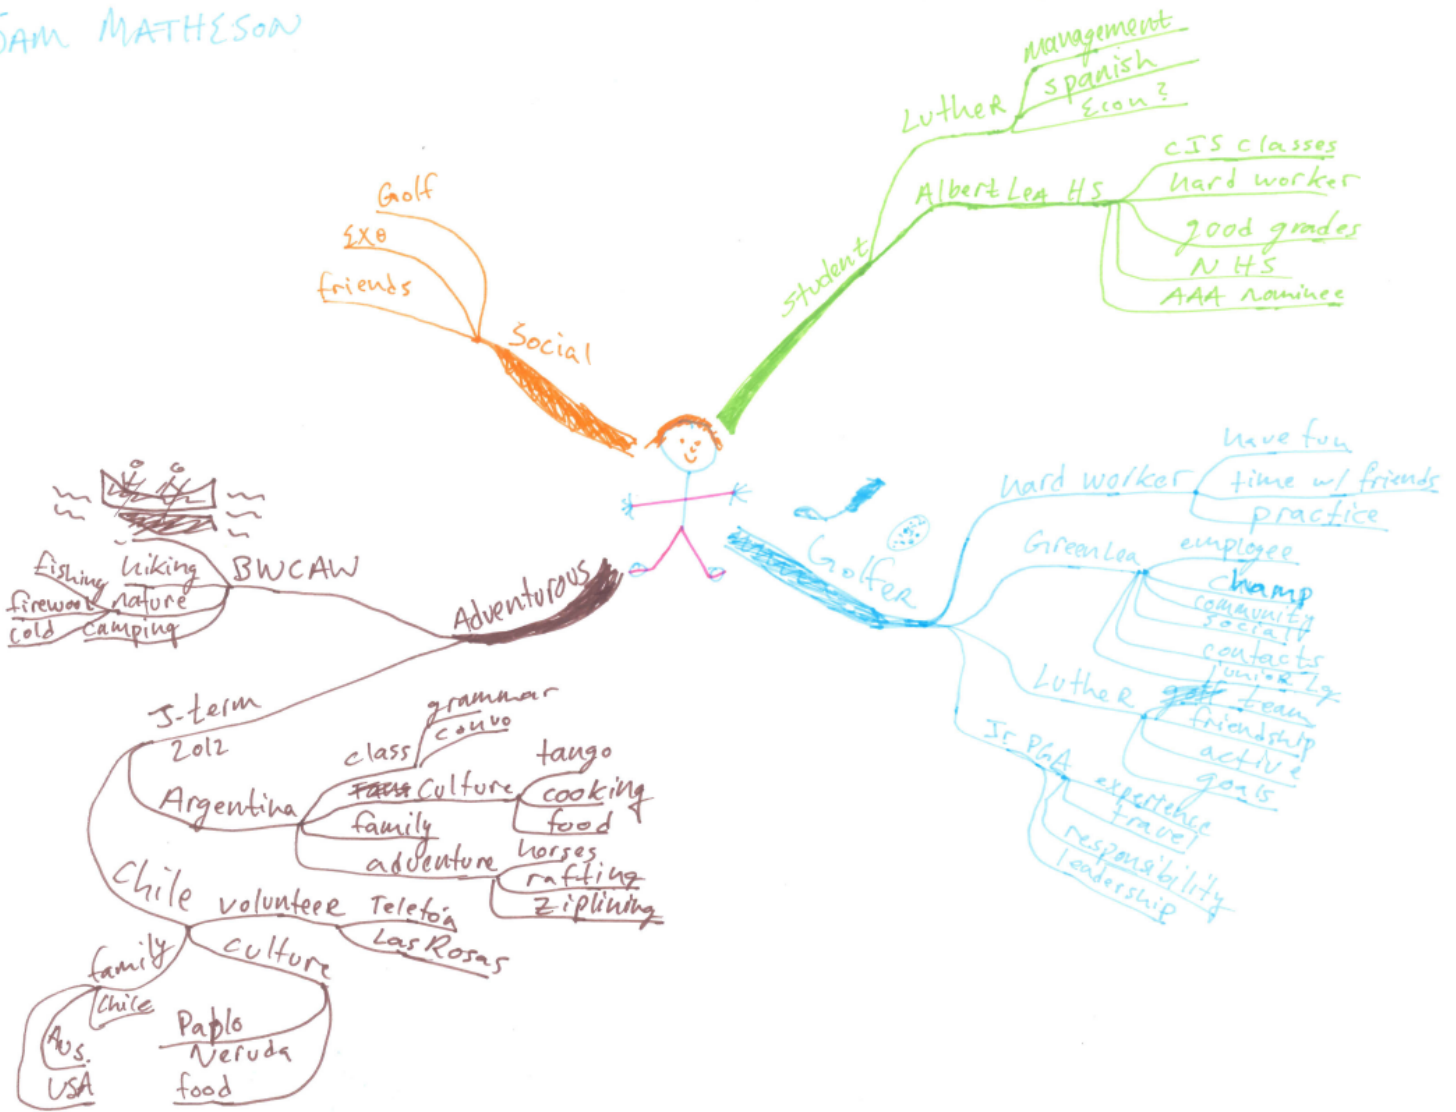 SAM MATHESON
Student
Luther
management
spanish
Econ?
Albert Lea HS
CIS classes
hard worker
good grades
NHS
AAA nominee
Social
Golf
ΣΧΘ
friends
Golfer
hard worker
have fun
time w/ friends
practice
Green Lea
employee
champ
community
social
contacts
junior Lg
Luther
golf team
friendship
active
goals
Jr. PGA
experience
travel
responsibility
leadership
Adventurous
BWCAW
hiking
nature
camping
fishing
firewood
cold
J-term
2012
Argentina
class
grammar
convo
Culture
tango
cooking
food
family
adventure
horses
rafting
ziplining
Chile
volunteer
Teletón
Las Rosas
culture
Pablo
Neruda
food
family
Chile
Aus.
USA